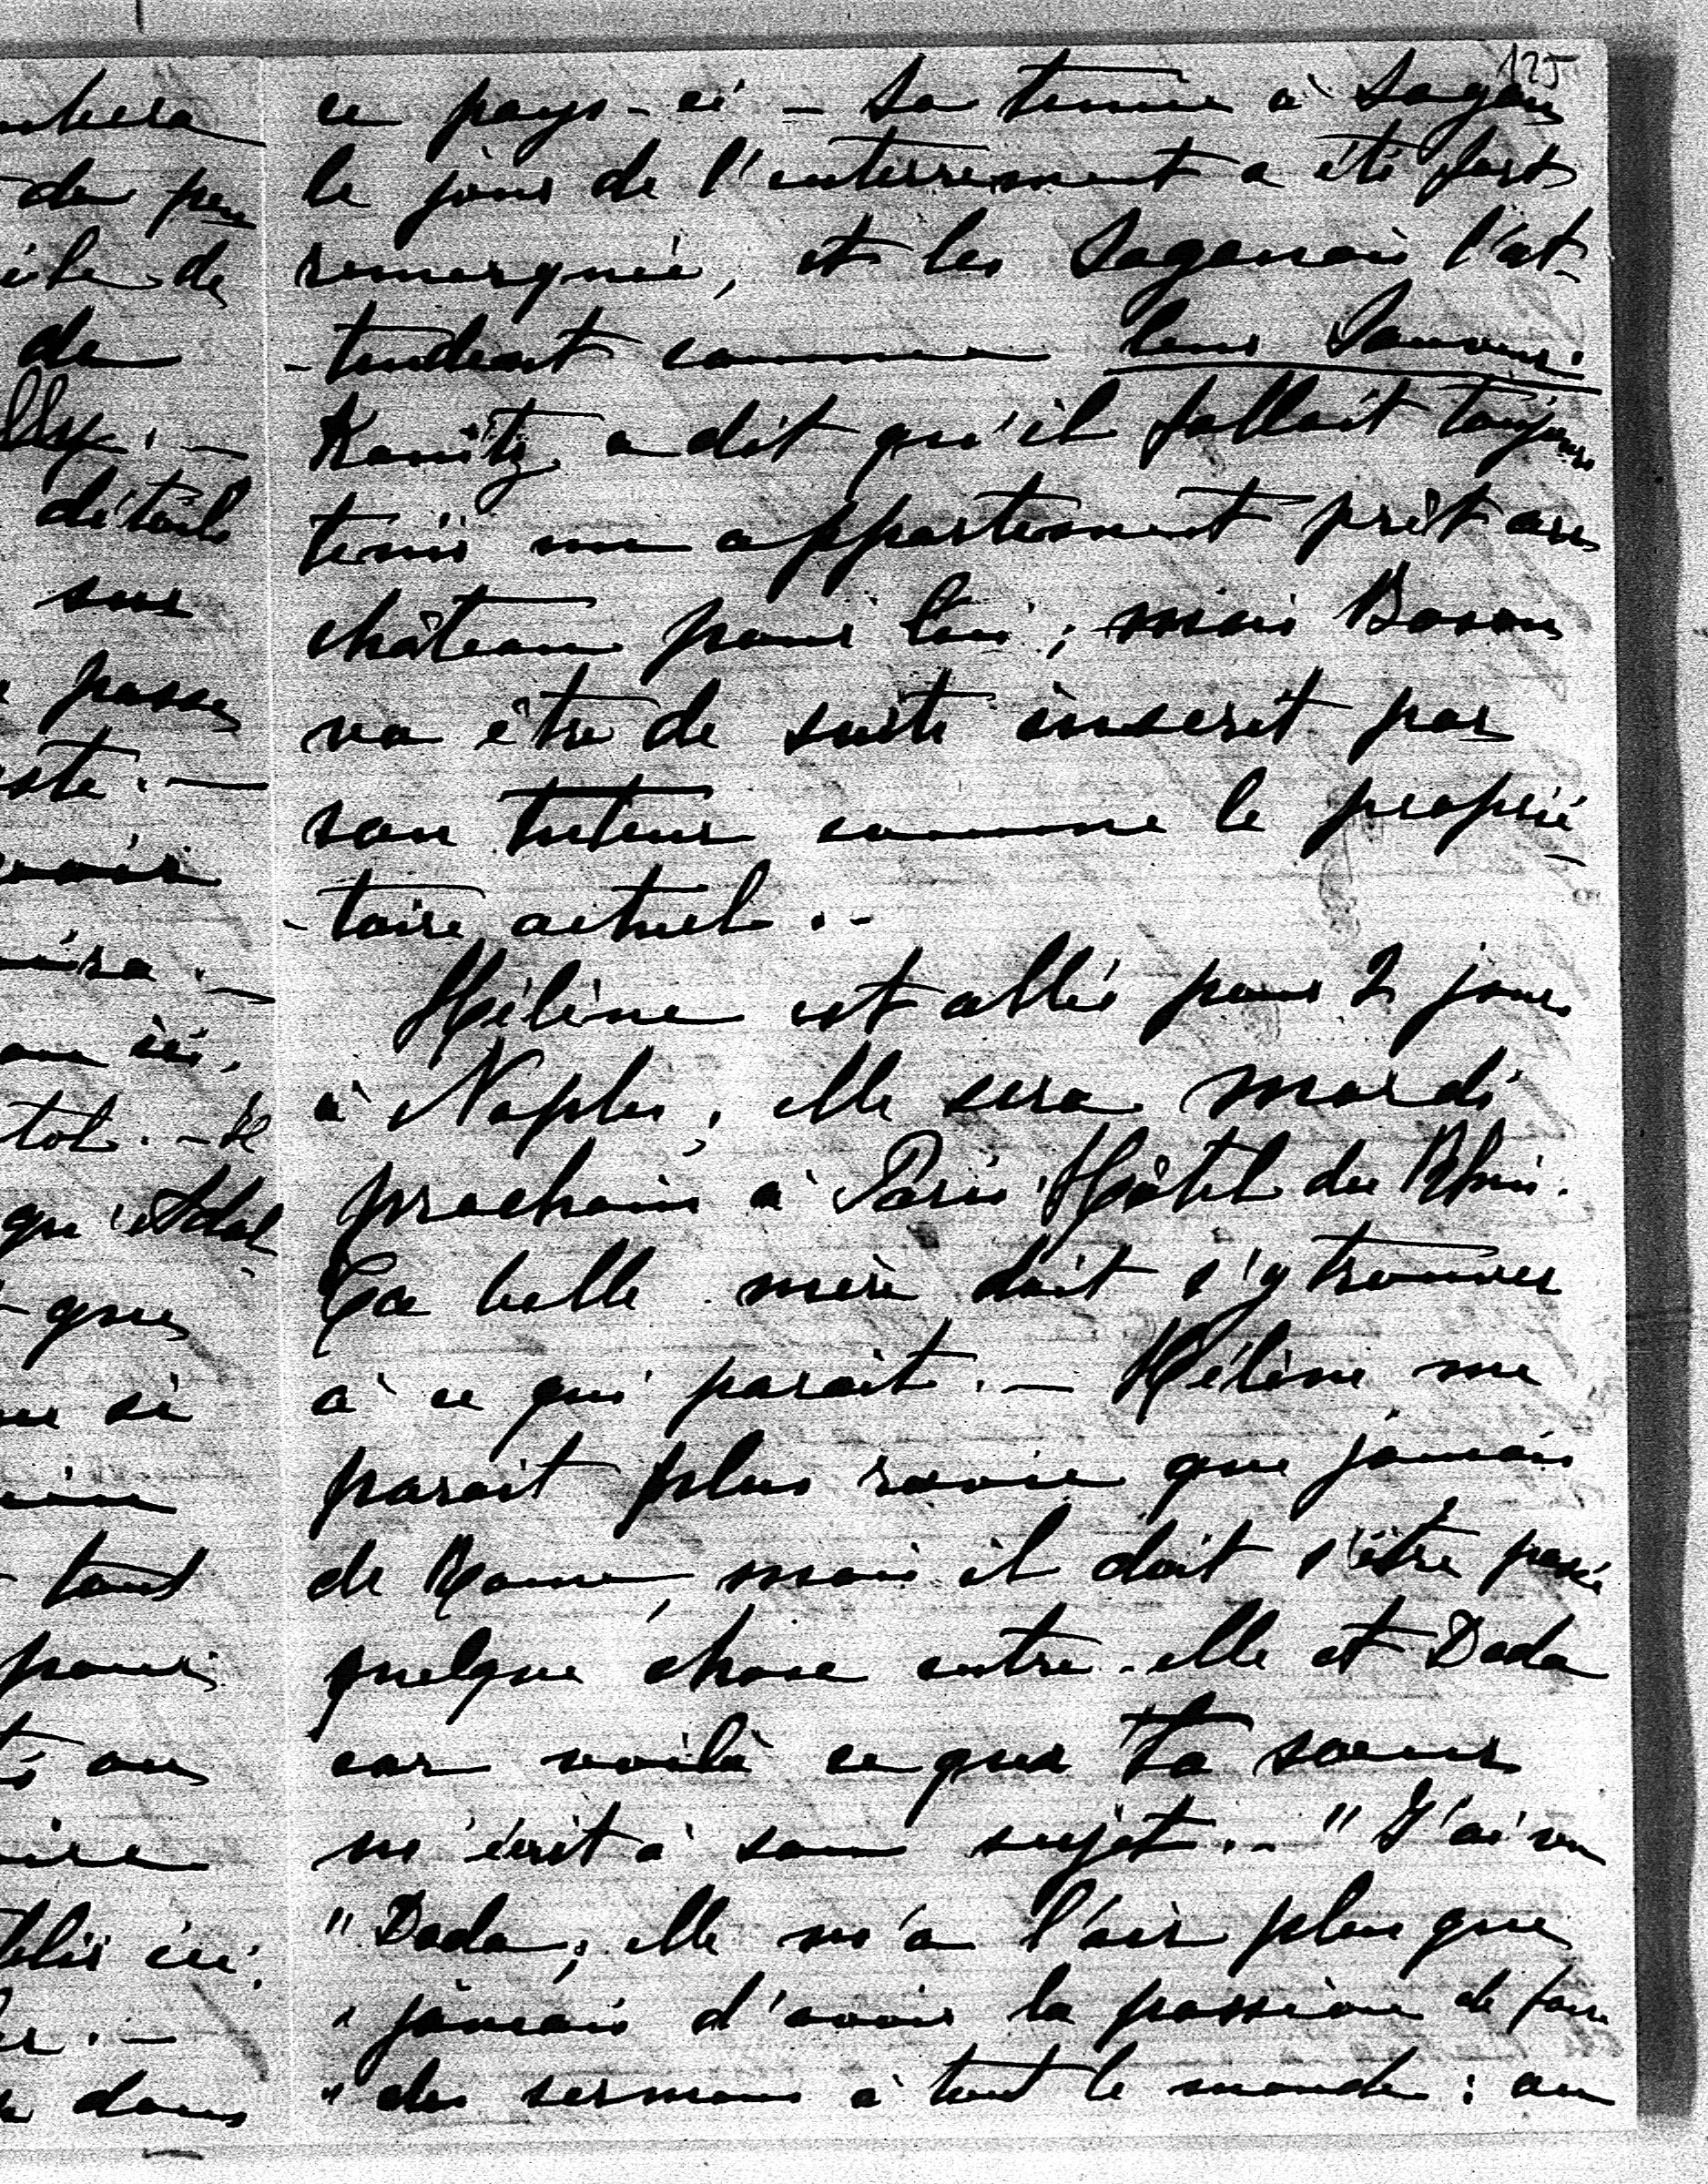 125
ce pays-ci - Sa tenue à Sagan
le jour de l'enterrement a été fort
remarquée, et les Saganais l'at-
-tendent comme leur Sauveur.
Kanitz a dit qu'il fallait toujours
tenir un appartement prêt au
château pour lui; mais Boson
va être de suite inscrit par
son tuteur comme le proprié-
-taire actuel. -
Hélène est allée pour 2 jours
à Naples, elle sera mardi
prochain à Paris, Hôtel du Rhin.
Ta belle mère doit s'y trouver
à ce qui parait. - Hélène me
parait plus ravie que jamais
de Rome, mais il doit s'être passé
quelque chose entre-elle et Dada
car voilà ce que ta soeur
m'écrit à son sujet. - "J'ai vu
"Dada, elle m'a l'air plus que
"jamais d'avoir la passion de faire
"des sermons à tout le monde: au
de peu
de
de
détails
sur
passe
voir
qu'Adal
que
si
tout
pour
au
ici.
dans